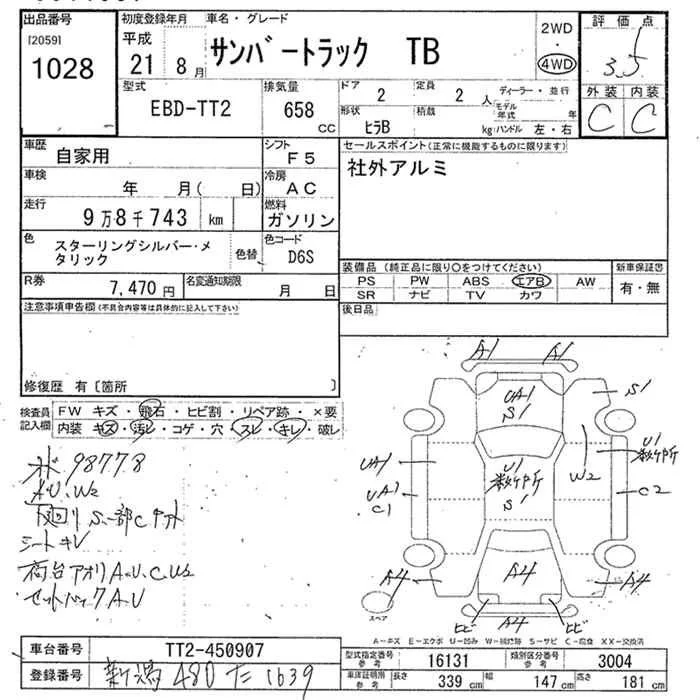 出品番号 初度登録年月 車名・グレード 2WD 評価点
[2059] 平成 サンバートラック TB 4WD 3.5
1028 21年 8月
型式 排気量 ドア 定員 ディーラー・並行 外装 内装
EBD-TT2 658 CC 2 2 人 モデル年式 年 C C
形状 積載
ヒラB kg ハンドル 左・右
車歴 シフト セールスポイント(正常に機能するものに限ります)
自家用 F5 社外アルミ
車検 冷房
年 月( 日) AC
走行 燃料
9万8千743 km ガソリン
色 色替 色コード
スターリングシルバー・メタリック D6S
装備品(純正品に限り○をつけてください) 新車保証書
R券 名変通知期限 PS PW ABS エアB AW 有・無
7,470円 月 日 SR ナビ TV カワ
注意事項申告欄(不具合内容等は具体的に記入して下さい) 後日品
修復歴 有〔箇所 〕
検査員記入欄 FW キズ・飛石・ヒビ割・リペア跡・×要
内装 キズ・汚レ・コゲ・穴・スレ・キレ・破レ
98778
A.U.W2
下廻りS.一部C
シートキレ
荷台アオリA.U.C.U2
A.U
A1 A1
UA1 S1
S1
UA1
UA1 C1
U1 数ヶ所 S1
W2
U1 数ヶ所
C2
A4 A4 A4
スペア
ヒビ A4 ヒビ
A-キズ E-エクボ U-凹み W-補修跡 S-サビ C-腐食 XX-交換済
車台番号 TT2-450907
登録番号 新潟 480 た 1639
型式指定番号 参考 16131 類別区分番号 参考 3004
車庫証明別 参考 長さ 339 cm 幅 147 cm 高さ 181 cm